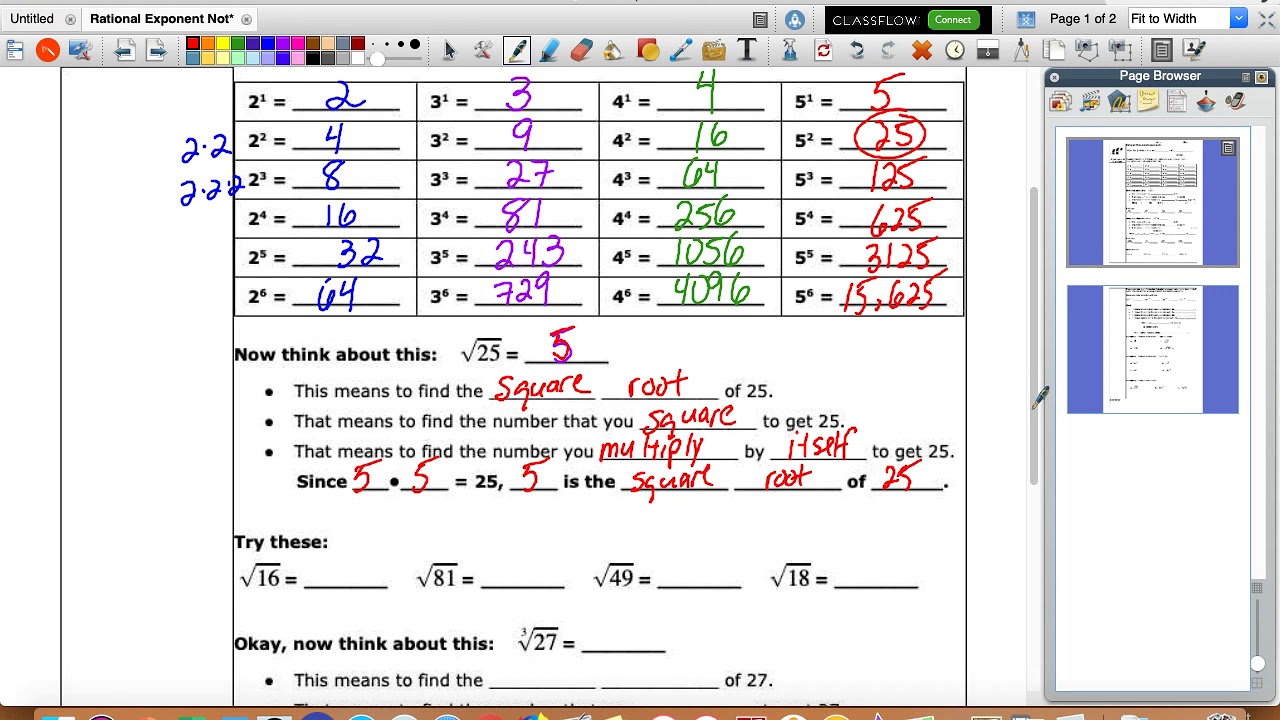 Untitled Rational Exponent Not* CLASSFLOW Connect Page 1 of 2 Fit to Width
Page Browser
2¹ = 2 3¹ = 3 4¹ = 4 5¹ = 5
2·2 2² = 4 3² = 9 4² = 16 5² = 25
2·2·2 2³ = 8 3³ = 27 4³ = 64 5³ = 125
2⁴ = 16 3⁴ = 81 4⁴ = 256 5⁴ = 625
2⁵ = 32 3⁵ = 243 4⁵ = 1056 5⁵ = 3125
2⁶ = 64 3⁶ = 729 4⁶ = 4096 5⁶ = 15,625
Now think about this: √25 = 5
• This means to find the square root of 25.
• That means to find the number that you square to get 25.
• That means to find the number you multiply by itself to get 25.
Since 5 • 5 = 25, 5 is the square root of 25.
Try these:
√16 = ______ √81 = ______ √49 = ______ √18 = ______
Okay, now think about this: ∛27 = ______
• This means to find the ______ ______ of 27.